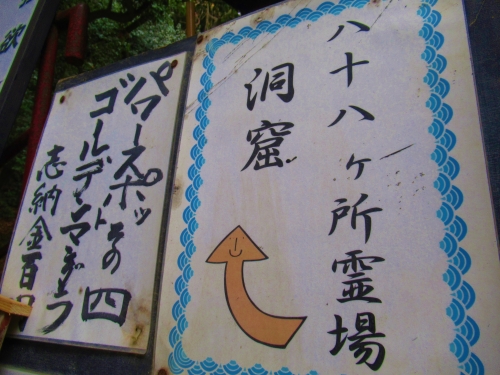 八十八ヶ所霊場
洞窟
パワースポットその四
ゴールデンマグラ
志納金百